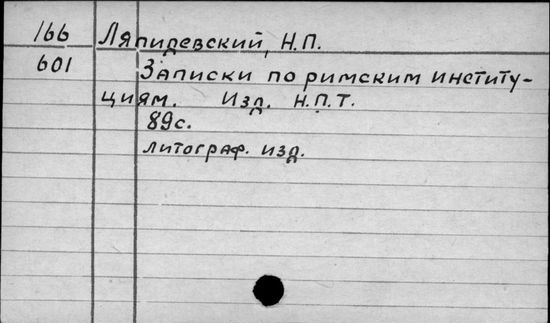 166 Ляпидевский, Н.П.
601 Записки по римским институ-
циям. Изд. Н.П.Т.
89с.
литограф. изд.